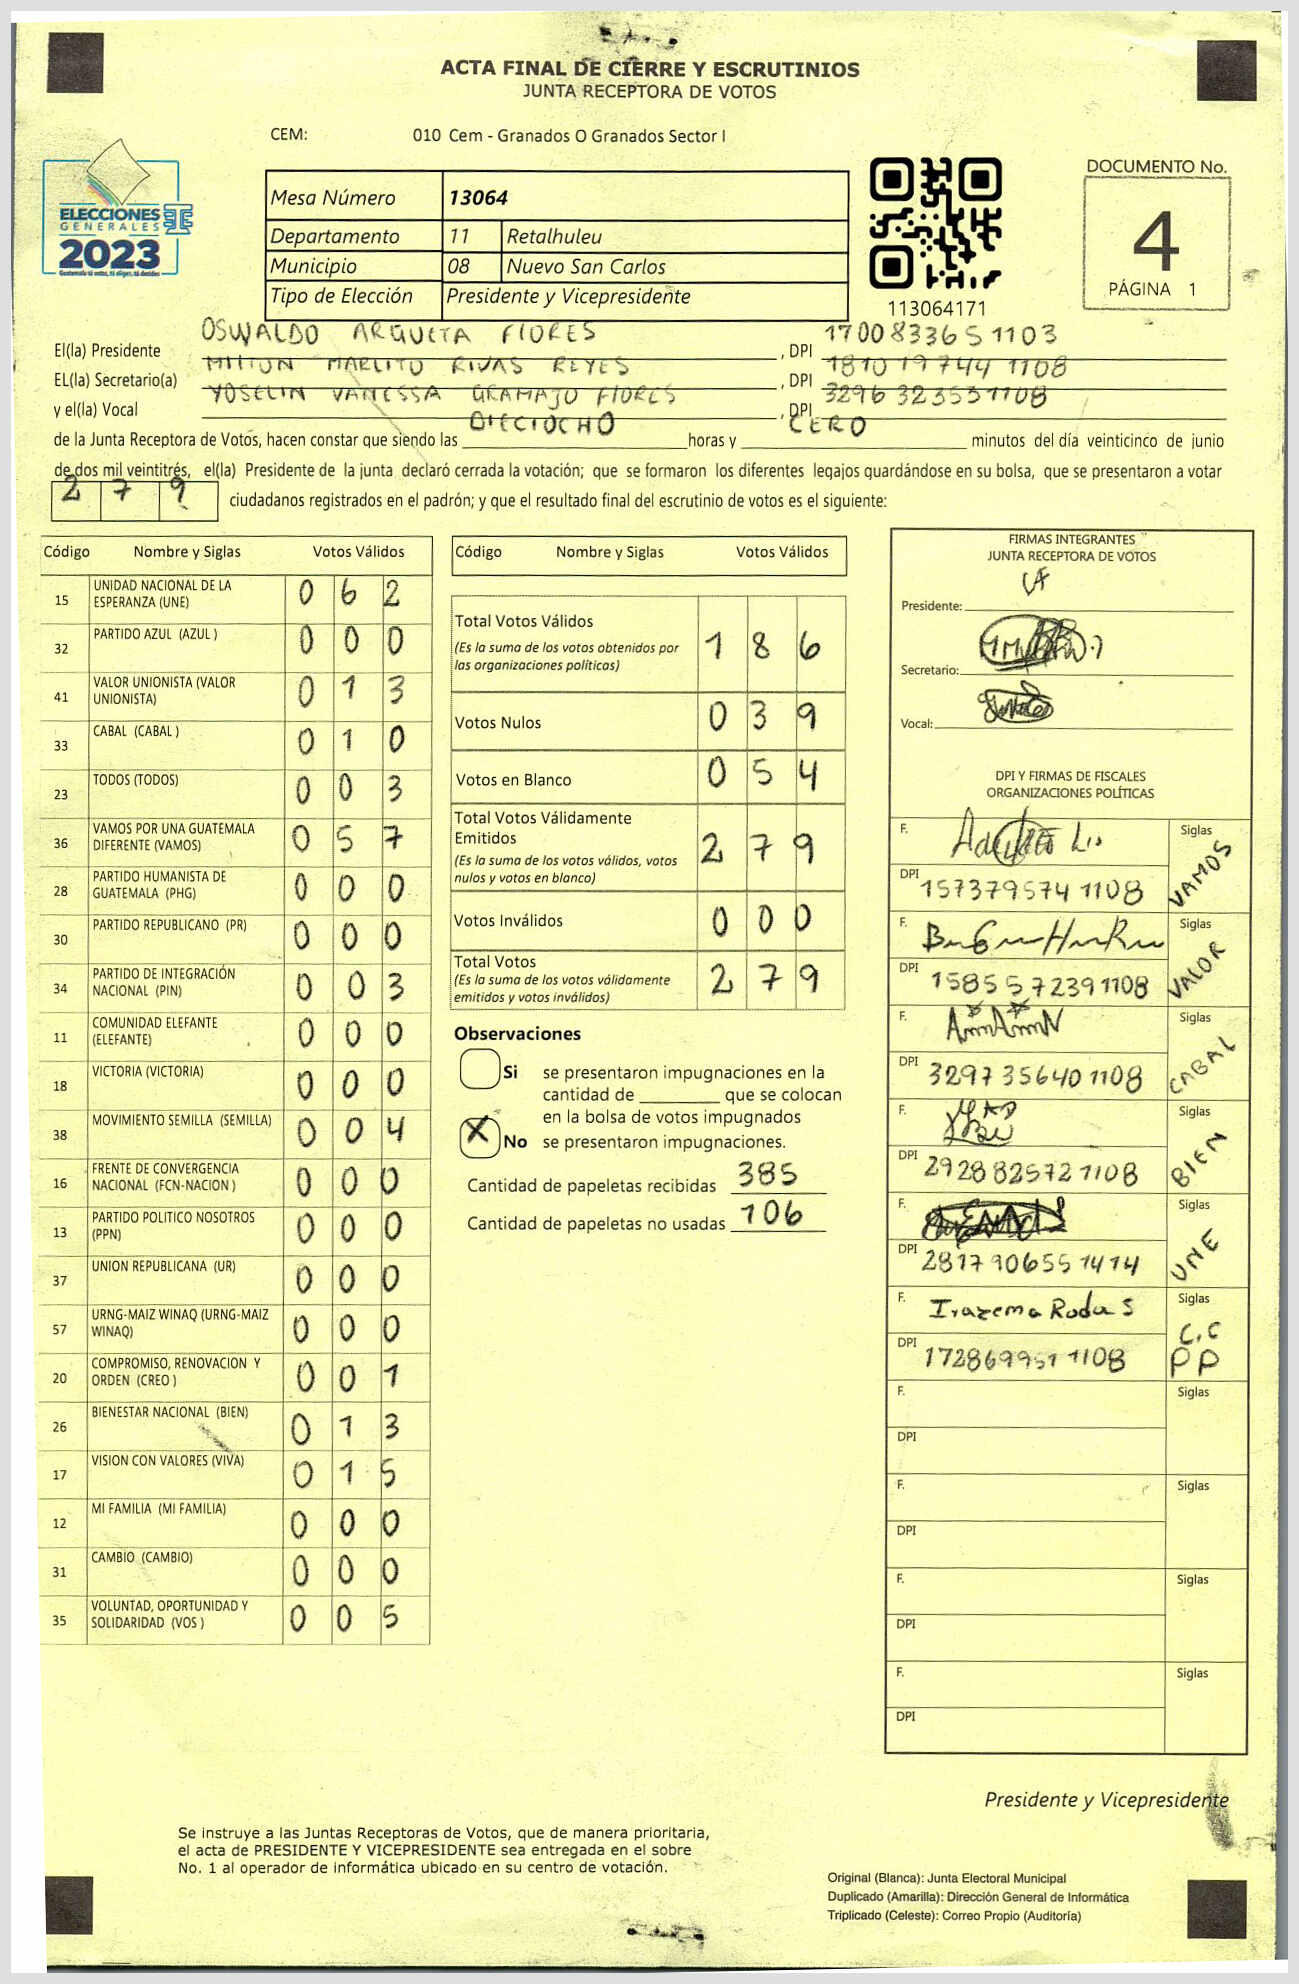 ACTA FINAL DE CIERRE Y ESCRUTINIOS
JUNTA RECEPTORA DE VOTOS
CEM: 010 Cem - Granados O Granados Sector I
ELECCIONES
GENERALES
2023
Guatemala tú votas, tú eliges, tú decides
Mesa Número 13064
Departamento 11 Retalhuleu
Municipio 08 Nuevo San Carlos
Tipo de Elección Presidente y Vicepresidente
113064171
DOCUMENTO No.
4
PÁGINA 1
El(la) Presidente OSWALDO ARGUETA FLORES, DPI 170083365 1103
EL(la) Secretario(a) MILTON MARLITO RIVAS REYES, DPI 1810 19744 1108
y el(la) Vocal YOSELIN VANESSA GRAMAJO FLORES, DPI 3296 32353 1108
de la Junta Receptora de Votos, hacen constar que siendo las DIECIOCHO horas y CERO minutos del día veinticinco de junio
de dos mil veintitrés, el(la) Presidente de la junta declaró cerrada la votación; que se formaron los diferentes legajos guardándose en su bolsa, que se presentaron a votar
2 7 9 ciudadanos registrados en el padrón; y que el resultado final del escrutinio de votos es el siguiente:
Código Nombre y Siglas Votos Válidos
15 UNIDAD NACIONAL DE LA ESPERANZA (UNE) 0 6 2
32 PARTIDO AZUL (AZUL ) 0 0 0
41 VALOR UNIONISTA (VALOR UNIONISTA) 0 1 3
33 CABAL (CABAL ) 0 1 0
23 TODOS (TODOS) 0 0 3
36 VAMOS POR UNA GUATEMALA DIFERENTE (VAMOS) 0 5 7
28 PARTIDO HUMANISTA DE GUATEMALA (PHG) 0 0 0
30 PARTIDO REPUBLICANO (PR) 0 0 0
34 PARTIDO DE INTEGRACIÓN NACIONAL (PIN) 0 0 3
11 COMUNIDAD ELEFANTE (ELEFANTE) 0 0 0
18 VICTORIA (VICTORIA) 0 0 0
38 MOVIMIENTO SEMILLA (SEMILLA) 0 0 4
16 FRENTE DE CONVERGENCIA NACIONAL (FCN-NACION ) 0 0 0
13 PARTIDO POLITICO NOSOTROS (PPN) 0 0 0
37 UNION REPUBLICANA (UR) 0 0 0
57 URNG-MAIZ WINAQ (URNG-MAIZ WINAQ) 0 0 0
20 COMPROMISO, RENOVACION Y ORDEN (CREO ) 0 0 1
26 BIENESTAR NACIONAL (BIEN) 0 1 3
17 VISION CON VALORES (VIVA) 0 1 5
12 MI FAMILIA (MI FAMILIA) 0 0 0
31 CAMBIO (CAMBIO) 0 0 0
35 VOLUNTAD, OPORTUNIDAD Y SOLIDARIDAD (VOS ) 0 0 5
Código Nombre y Siglas Votos Válidos
Total Votos Válidos 1 8 6
(Es la suma de los votos obtenidos por
las organizaciones políticas)
Votos Nulos 0 3 9
Votos en Blanco 0 5 4
Total Votos Válidamente
Emitidos 2 7 9
(Es la suma de los votos válidos, votos
nulos y votos en blanco)
Votos Inválidos 0 0 0
Total Votos 2 7 9
(Es la suma de los votos válidamente
emitidos y votos inválidos)
Observaciones
Si se presentaron impugnaciones en la
cantidad de ________ que se colocan
en la bolsa de votos impugnados
X No se presentaron impugnaciones.
Cantidad de papeletas recibidas 385
Cantidad de papeletas no usadas 106
FIRMAS INTEGRANTES
JUNTA RECEPTORA DE VOTOS
Presidente:
Secretario:
Vocal:
DPI Y FIRMAS DE FISCALES
ORGANIZACIONES POLÍTICAS
F. Siglas VAMOS
DPI 157379574 1108
F. Siglas VALOR
DPI 1585572391108
F. Siglas CABAL
DPI 3297356401108
F. Siglas BIEN
DPI 2928825721108
F. Siglas UNE
DPI 2817906551414
F. Irazema Rodas Siglas C.C PP
DPI 172869951 1108
F. Siglas
DPI
F. Siglas
DPI
F. Siglas
DPI
F. Siglas
DPI
Presidente y Vicepresidente
Se instruye a las Juntas Receptoras de Votos, que de manera prioritaria,
el acta de PRESIDENTE Y VICEPRESIDENTE sea entregada en el sobre
No. 1 al operador de informática ubicado en su centro de votación.
Original (Blanca): Junta Electoral Municipal
Duplicado (Amarilla): Dirección General de Informática
Triplicado (Celeste): Correo Propio (Auditoría)